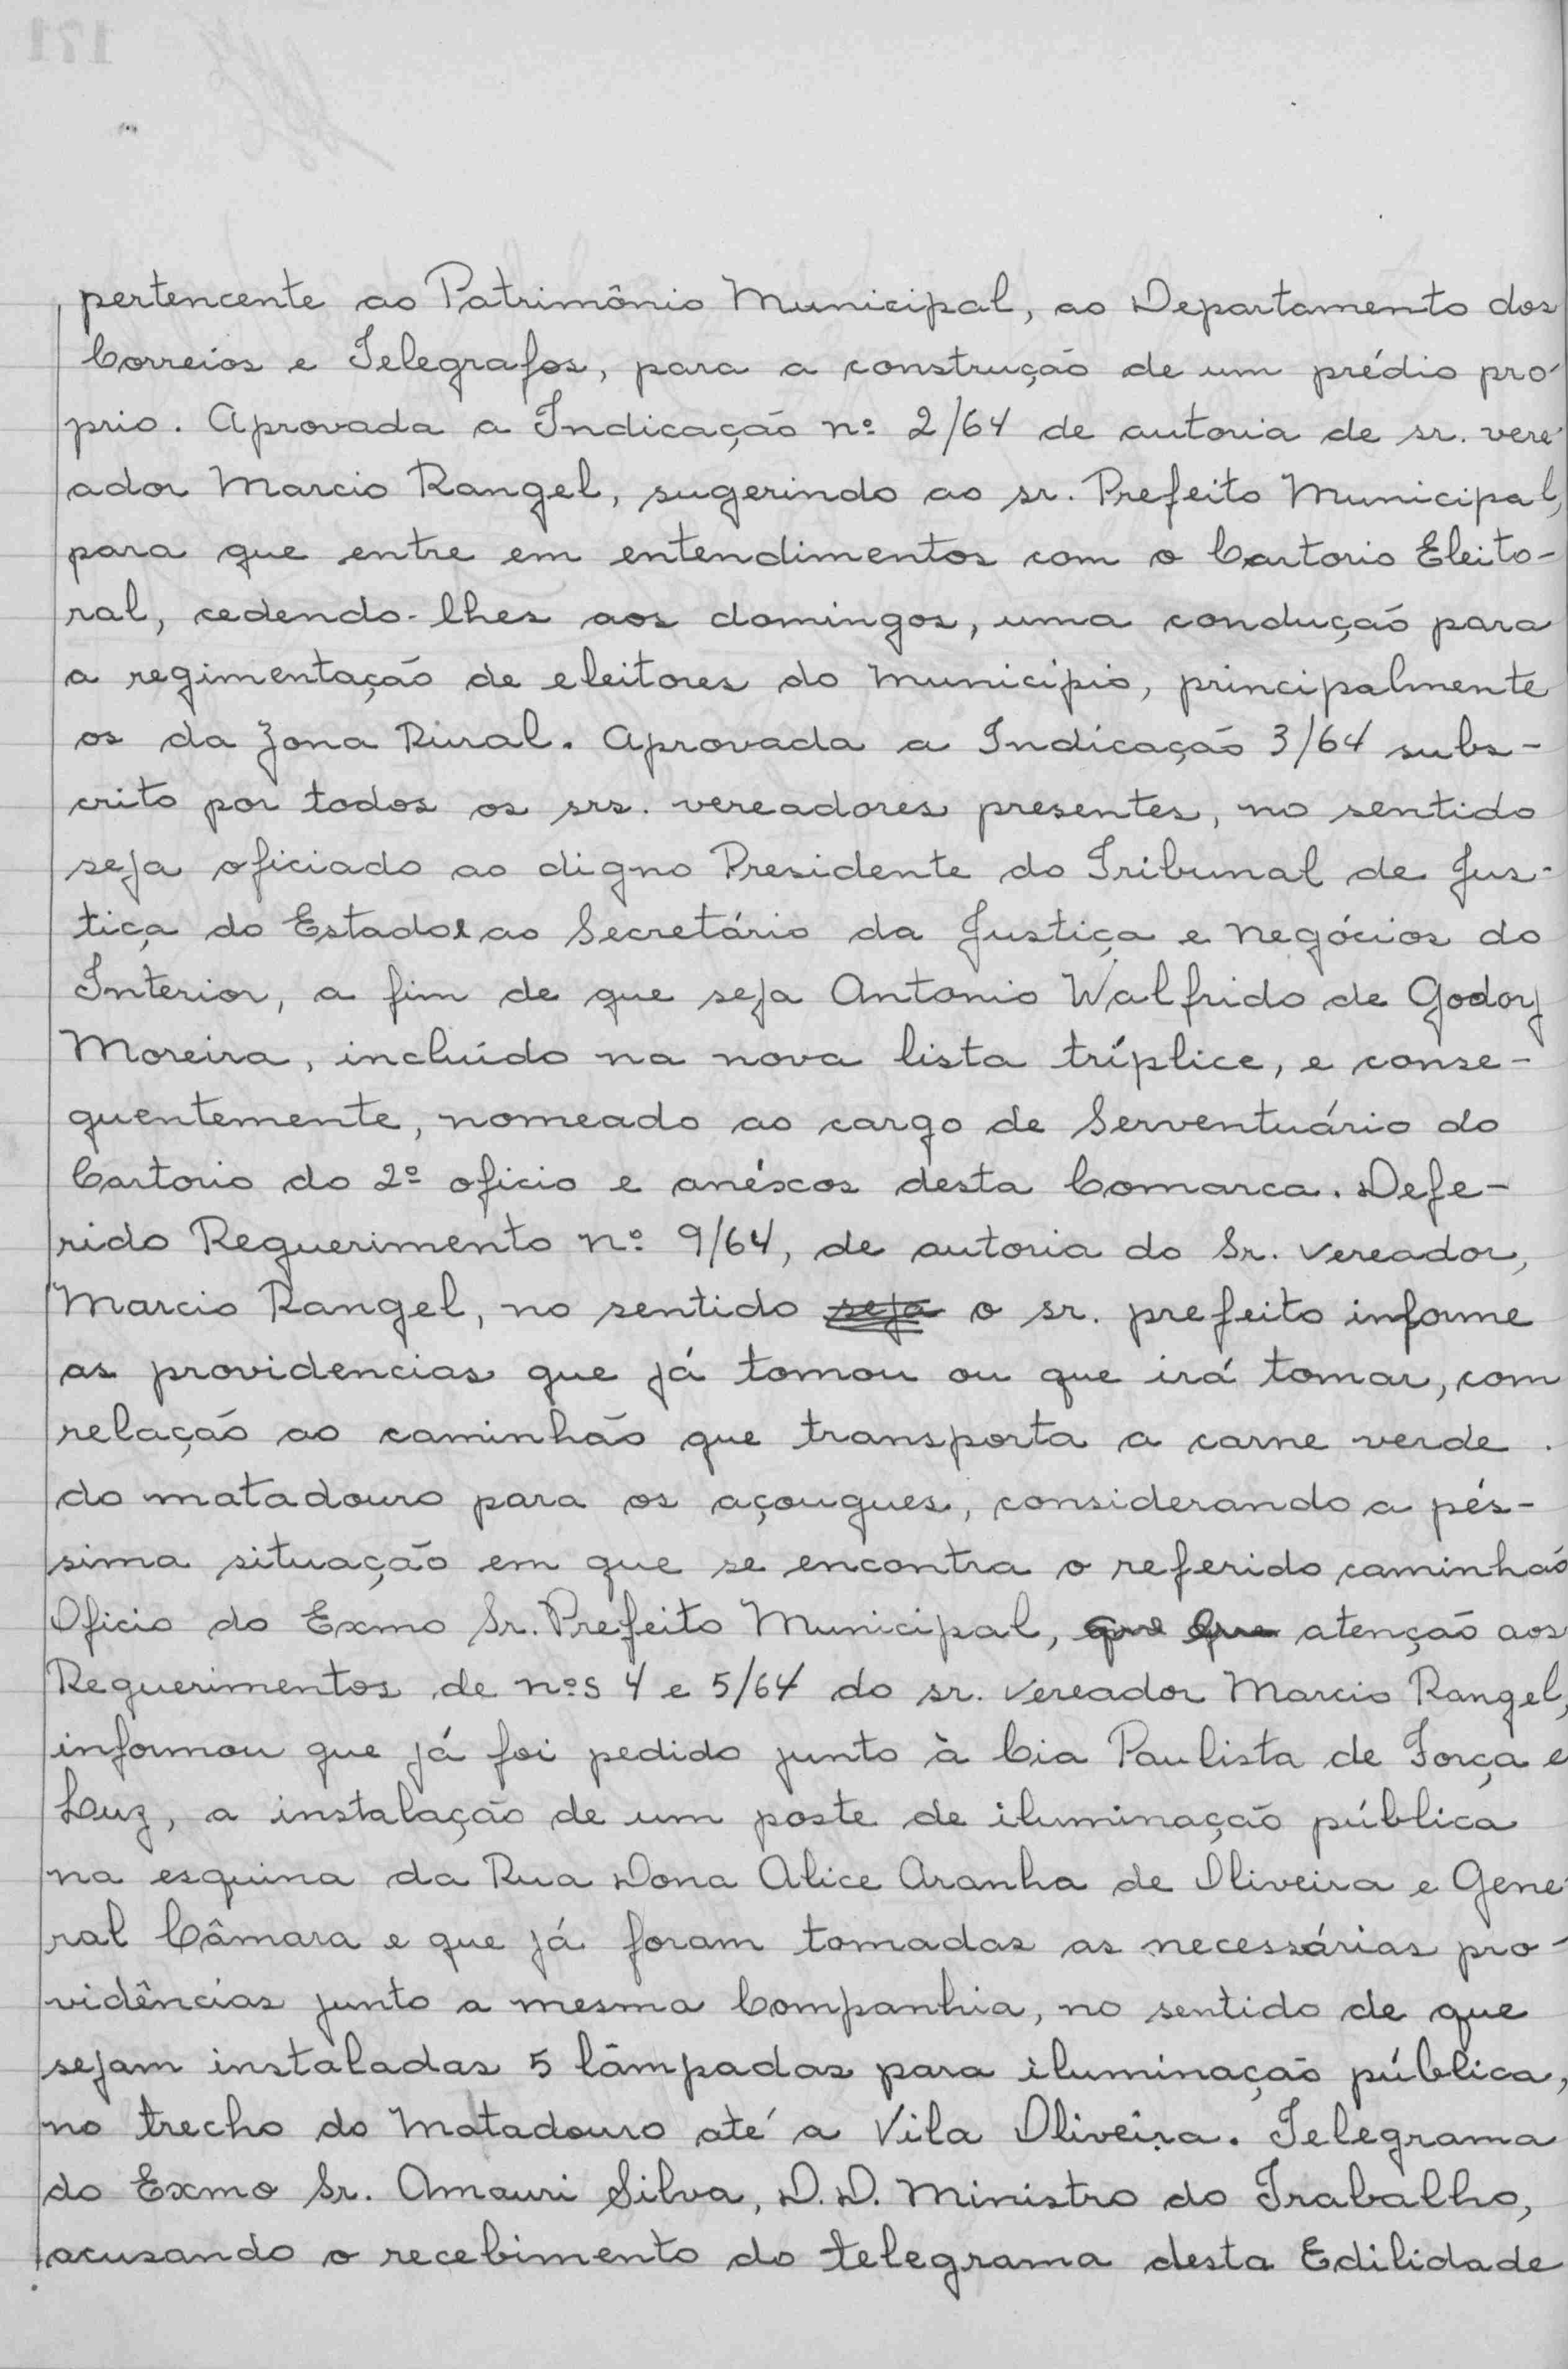 pertencente ao Patrimônio Municipal, ao Departamento dos
Correios e Telegrafos, para a construção de um prédio pró-
prio. Aprovada a Indicação nº 2/64 de autoria de sr. vere-
ador Marcio Rangel, sugerindo ao sr. Prefeito Municipal,
para que entre em entendimentos com o Cartorio Eleito-
ral, cedendo-lhes aos domingos, uma condução para
a regimentação de eleitores do município, principalmente
os da Zona Rural. Aprovada a Indicação 3/64 subs-
crito por todos os srs. vereadores presentes, no sentido
seja oficiado ao digno Presidente do Tribunal de Jus-
tiça do Estado e ao Secretário da Justiça e Negócios do
Interior, a fim de que seja Antonio Walfrido de Godoy
Moreira, incluído na nova lista tríplice, e conse-
quentemente, nomeado ao cargo de Serventuário do
Cartorio do 2º oficio e anéxos desta Comarca. Defe-
rido Requerimento nº 9/64, de autoria do Sr. vereador,
Marcio Rangel, no sentido seja o sr. prefeito informe
as providencias que já tomou ou que irá tomar, com
relação ao caminhão que transporta a carne verde
do matadouro para os açougues, considerando a pés-
sima situação em que se encontra o referido caminhão
Oficio do Exmo Sr. Prefeito Municipal, atenção aos
Requerimentos de nºs 4 e 5/64 do sr. vereador Marcio Rangel,
informou que já foi pedido junto à Cia Paulista de Força e
Luz, a instalação de um poste de iluminação pública
na esquina da Rua Dona Alice Aranha de Oliveira e Gene-
ral Câmara e que já foram tomadas as necessárias pro-
vidências junto a mesma Companhia, no sentido de que
sejam instaladas 5 lâmpadas para iluminação pública,
no trecho do Matadouro até a Vila Oliveira. Telegrama
do Exmo Sr. Amauri Silva, D.D. Ministro do Trabalho,
acusando o recebimento do telegrama desta Edilidade